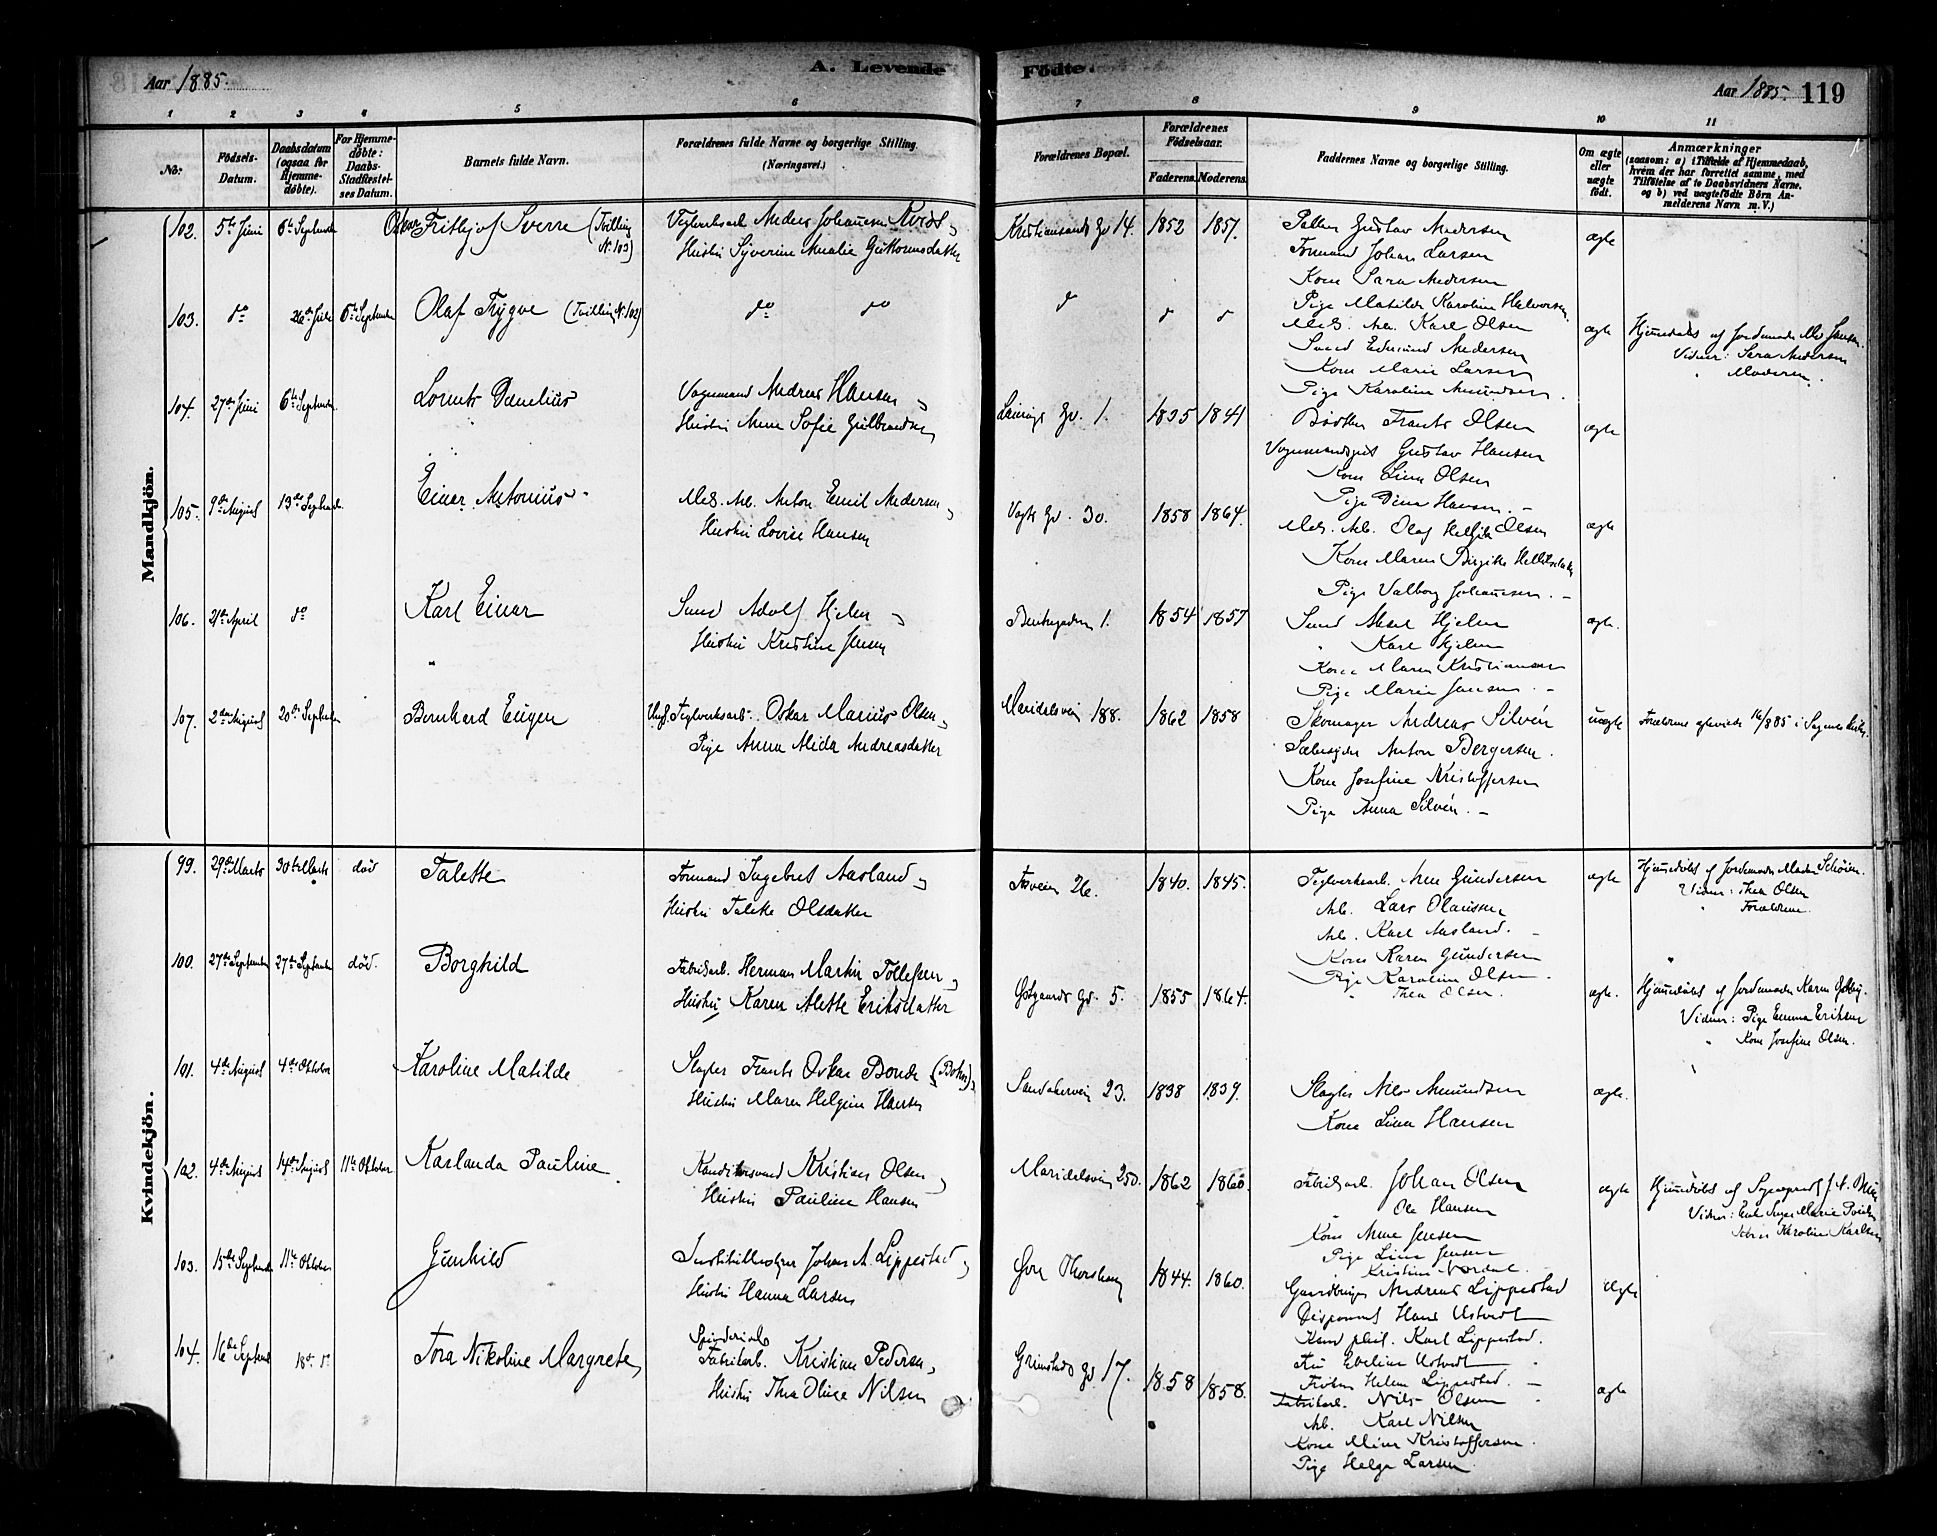 Aar 1885.
A. Levende
Födte.
Aar 1885. 119
1 2 3 4 5 6 7 8 9 10 11
No:
Födsels-Datum.
Daabsdatum (ogsaa for Hjemme-döbte).
For Hjemme-döbte: Daabs-Stadfæstel-ses Datum.
Barnets fulde Navn.
Forældrenes fulde Navne og borgerlige Stilling. (Næringsvei.)
Forældrenes Bopæl.
Forældrenes Födselsaar.
Faderens. Moderens.
Faddernes Navne og borgerlige Stilling.
Om ægte eller uægte födt.
Anmærkninger
(saasom: a) i Tilfælde af Hjemmedaab, hvem der har forrettet samme, med Tilföielse af to Daabsvidners Navne. og b) ved uægtefödte Börn An-melderens Navn m. V.)
Mandkjön.
102. 5te Juni 6te September Oskar Fritjof Sverre (Tvilling N. 103)
Teglverksarb. Anders Johansen
Hustru Syverine Amalie Guttormsdatter
Kristiansands Gd 14. 1852 1857.
Gustav Andersen
Formand Johan Larsen
Kone Sara Andersen
Pige Matilde Karoline Halvorsen
ægte
103. do 26de Juli 6te September Olaf Trygve (Tvilling N. 102)
do do
Mek. Arb. Karl Olsen
Smed Edmund Andersen
Kone Marie Larsen
Pige Karoline Amundsen.
ægte
Hjemmedøbt af Jordemoder Jensen.
Vidner: Sara Andersen
" Moderen.
104. 27de Juni 6te September. Lorents Danelius
Vognmand Andreas Hansen
Hustru Anne Sofie Gulbrandsen
Gd. 1. 1835 1841
Frants Olsen
Gustav Hansen
Kone Lina Olsen
Pige Dina Hansen.
ægte
105. 9de August 13de September. Einar Antonius
Mek. Arb. Anton Emil Andersen
Hustru Lovise Hansen
Vogts Gd. 30. 1858 1864.
Mek. Arb. Olaf Olsen
Kone Maren Birgitte
Pige Valborg Johannesen.
ægte
106. 21de April do Karl Einar
Smed Adolf Hjelm
Hustru Kristine Jensen
Bentsegaden 1. 1854 1857
Smed Aksel Hjelm
" Karl Hjelm
Kone Maren Kristiansen
Pige Marie Jansen.
ægte.
107. 2den August 20de September Bernhard Eugen
Ungk. Teglverksarb. Oskar Marius Olsen
Pige Anna Alida Andreasdatter
Maridalsvein 188. 1862 1858
Skomager Andreas Silvén
Anton Bergersen.
Kone Josefine Kristoffersen
Pige Anna Silvén.
uægte
Forældrene 16/8 85 i Sagene Kirke.
Kvindekjön.
99. 29de Marts 30te Marts død Talette
Formand Ingebret Aasland
Hustru Talette Olsdatter
26. 1840. 1845.
Teglverksarb. Arne Gundersen
Arb. Lars Olaussen
Arb. Karl Aasland.
Kone Karen Gundersen
Pige Karoline Olsen
" Thea Olsen.
ægte
Hjemmedøbt af Jordemoder Schøien.
Vidner: Thea Olsen
" Forældrene.
100. 27de September 27de September død. Borghild
Fabrikarb. Herman Martin Tollefsen
Hustru Karen Alette Eriksdatter
Østgaards Gd. 5. 1855 1864.
ægte.
Hjemmedøbt af Jordemoder Karen
Vidner: Pige Emma Eriksen
" Kone Josefine Olsen.
101. 4de August 4de Oktober Karoline Matilde
Slagter Frants Oskar Bonde
Hustru Maren Helgine Hansen
Sandakervein 23. 1838 1839.
Slagter Nils Amundsen
Kone Lina Hansen
ægte.
102. 4de August 14de August 11te Oktober Karlanda Pauline
Kristian Olsen
Hustru Pauline Hansen
Maridalsvein 250. 1862 1860.
Fabrikarb. Johan Olsen
Ole Hansen
Kone Anne Jensen
Pige Lina Jensen
Kristine Nordal.
ægte
Hjemmedøbt af Sogneprest
Vidner: Marie
Karoline Karlsen
103. 15de September 11te Oktober Gunhild
Johan A. Lippestad
Hustru Hanna Larsen
Thorshaug 1844. 1860.
Gaardbruger Andreas Lippestad
Disponent Hans Ustvedt
Kand. phil. Karl Lippestad.
Fru Eveline Ustvedt
Frøken Helene Lippestad.
ægte
104. 16de September 18de do Tora Nikoline Margrete
Spinderiarb.
Fabrikarb. Kristian Pedersen
Hustru Thea Oline Nilsen
Grimstads Gd 17. 1858 1858.
Fabrikarb. Nils Olsen
Arb. Karl Nilsen
Kone Mina Kristoffersen.
Pige Helga Larsen
ægte